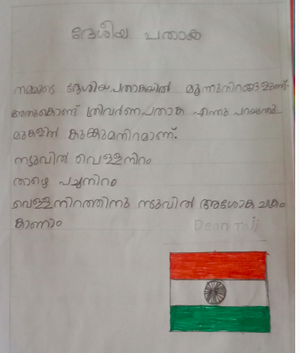 ദേശീയ പതാക
നമ്മുടെ ദേശീയപതാകയിൽ മൂന്നുനിറങ്ങളുണ്ട്
അതുകൊണ്ട് ത്രിവർണപതാക എന്നു പറയുന്നു.
മുകളിൽ കുങ്കുമനിറമാണ്.
നടുവിൽ വെള്ളനിറം
താഴെ പച്ചനിറം
വെള്ളനിറത്തിനു നടുവിൽ അശോകചക്രം
കാണാം